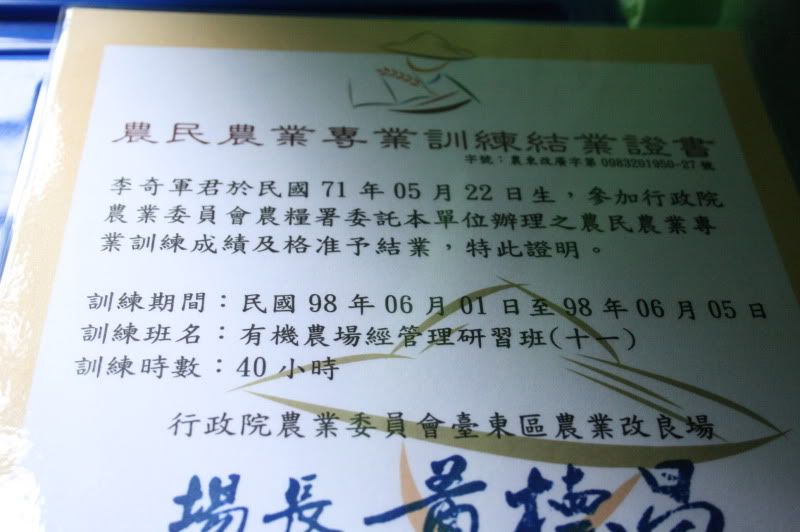 農民農業專業訓練結業證書
字號：農東改廣字第 0983201950-27 號
李奇軍君於民國 71 年 05 月 22 日生，參加行政院
農業委員會農糧署委託本單位辦理之農民農業專
業訓練成績及格准予結業，特此證明。
訓練期間：民國 98 年 06 月 01 日至 98 年 06 月 05 日
訓練班名：有機農場經管理研習班(十一)
訓練時數：40 小時
行政院農業委員會臺東區農業改良場
場長黃德昌